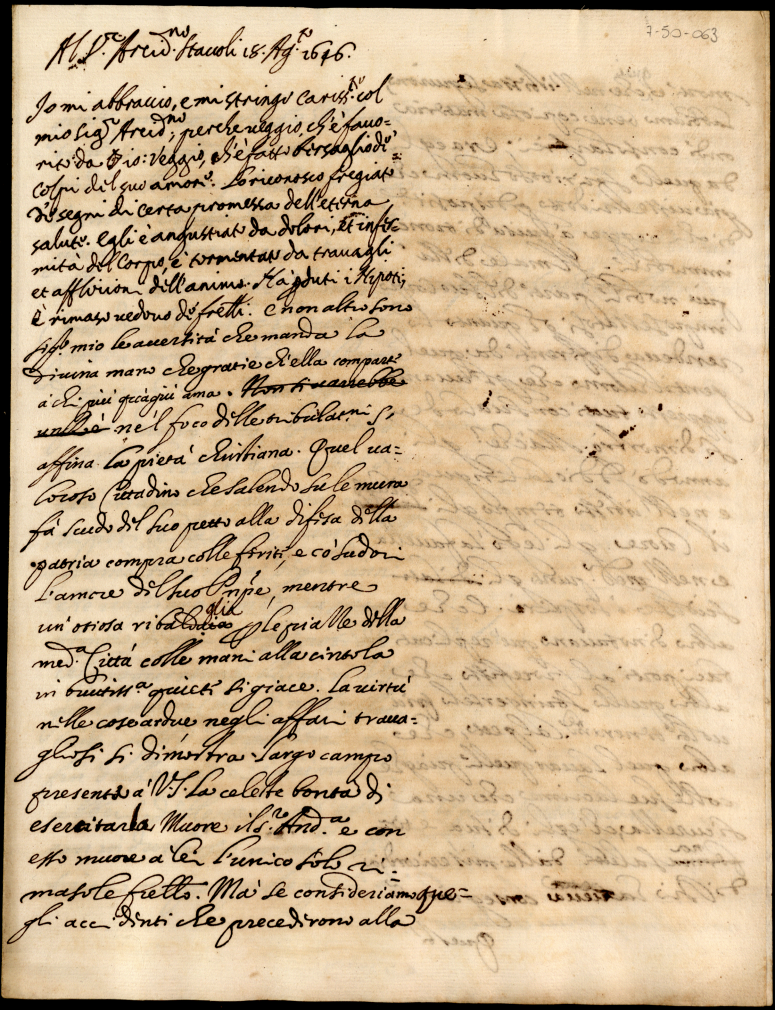 7-50-063
Al S.r Arcid.no Stavoli 18. Ag.to 1646.
Io mi abbraccio, e mi stringo cariss.to col
mio Sig.r Arcid.no; perche veggio, ch'è favo=
rito da Dio: Veggio, ch'è fatto bersaglio di
colpi del suo amore. Lo riconosco fregiato
di segni di certa promessa dell'eterna
salute. Egli è angustiato da dolori, et infer=
mità del Corpo, è tormentato da travagli
et afflitioni dell'animo. Hà pduti i Nipoti,
è rimaso vedovo di frelli. E non altro sono
Sig.r mio le aversità che manda la
Divina mano che gratie ch'ella comparte
à chi più qccagiù ama. Non si varrebbe
nel foco delle tribulatni s'
affina la pietà christiana. Quel va=
loroso Cittadino che salendo su le mura
fà scudo del suo petto alla difesa della
patria compra colle ferite, e co' sudori
l'amore del suo Pnpe, mentre
un'otiosa ribaldaglia p le piazze della
med.a Città colle mani alla cintola
in bruttiss.a quiete si giace. La virtù
nelle cose ardue negli affari trava=
gliosi si dimostra. Largo campo
presenta à V.S. la celeste bontà di
esercitarla. Muore il S.r And.a e con
esso muore à lei l'unico solo ri=
masole frello. Mà se consideriamo que=
gli accidenti che precederono alla